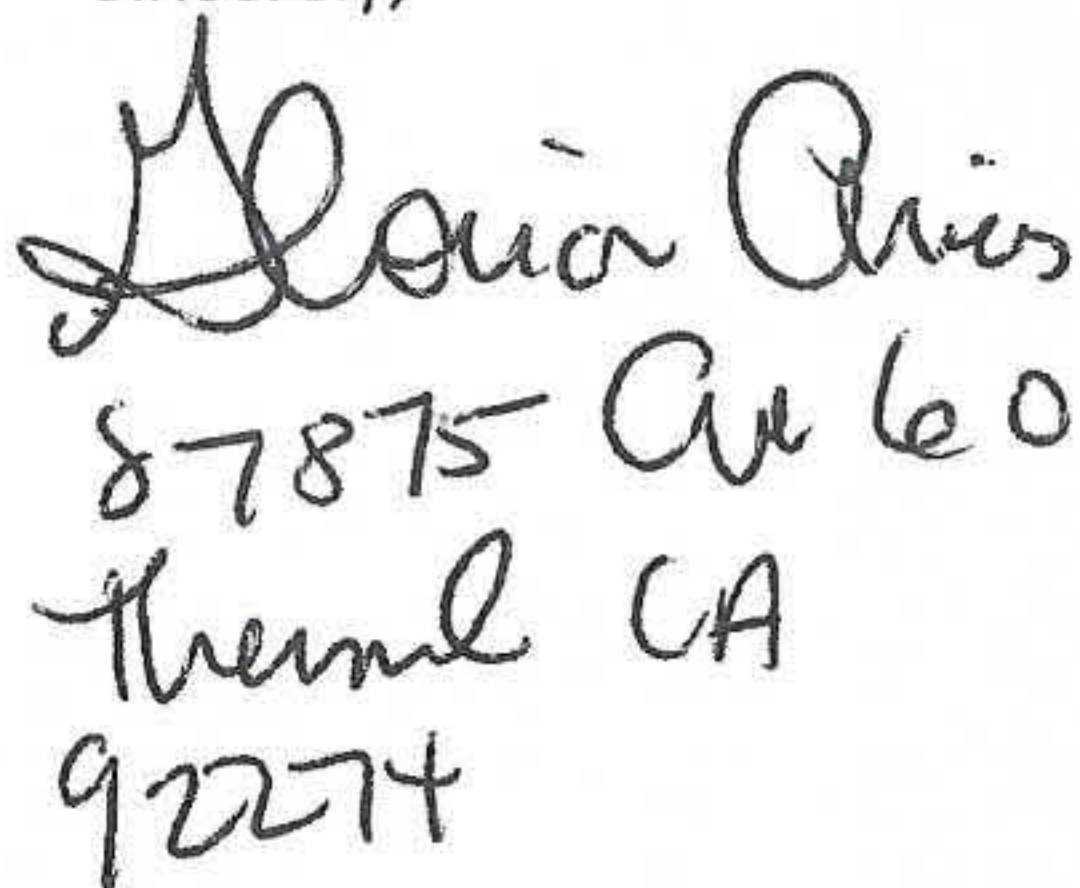 Gloria Rios
87875 Ave 60
Thermal CA
92274